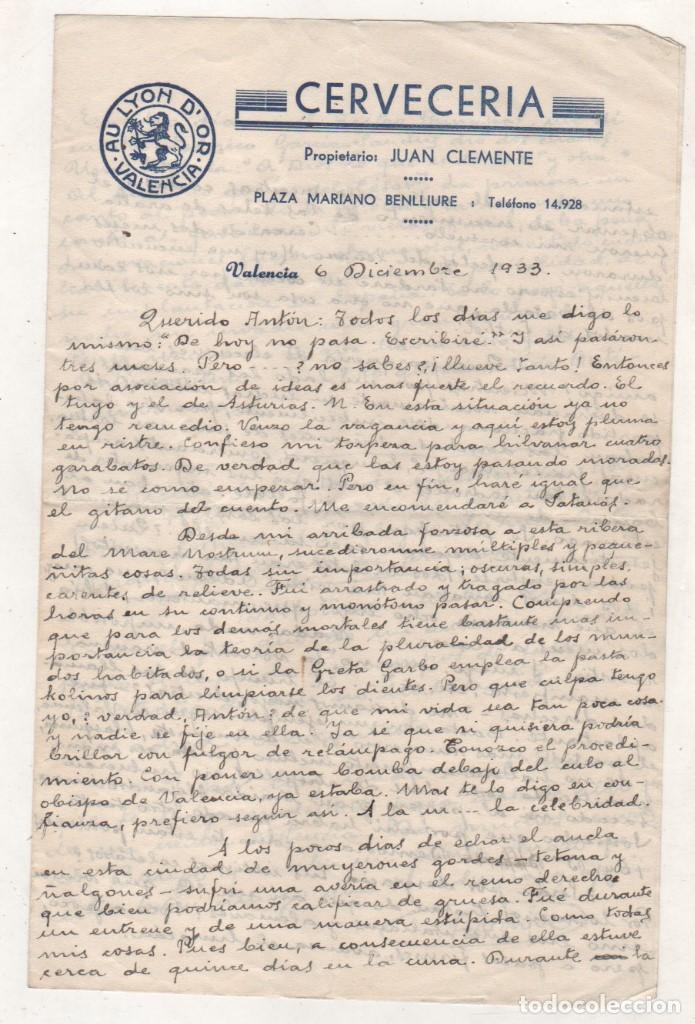 AU LYON D'OR · VALENCIA ·
CERVECERIA
Propietario: JUAN CLEMENTE
PLAZA MARIANO BENLLIURE : Teléfono 14.928
Valencia 6 Diciembre 1933.
Querido Antón: Todos los días me digo lo
mismo: "De hoy no pasa. Escribiré." Y así pasáron
tres meses. Pero ----? no sabes?, ¡llueve tanto! Entonces
por asociación de ideas es mas fuerte el recuerdo. El
tuyo y el de Asturias. N. En esta situación ya no
tengo remedio. Venzo la vagancia y aquí estoy pluma
en ristre. Confieso mi torpeza para hilvanar cuatro
garabatos. De verdad que las estoy pasando moradas.
No sé como empezar. Pero en fin, haré igual que
el gitano del cuento. Me encomendaré a Satanás.
Desde mi arribada forzosa a esta ribera
del Mare Nostrum, sucedieronme múltiples y peque-
ñitas cosas. Todas sin importancia; oscuras, simples,
carentes de relieve. Fui arrastrado y tragado por las
horas en su continuo y monótono pasar. Comprendo
que para los demás mortales tiene bastante mas im-
portancia la teoría de la pluralidad de los mun-
dos habitados, o si la Greta Garbo emplea la pasta
kolinos para limpiarse los dientes. Pero que culpa tengo
yo, ? verdad, Antón? de que mi vida sea tan poca cosa
y nadie se fije en ella. Ya sé que si quisiera podría
brillar con fulgor de relámpago. Conozco el procedi-
miento. Con poner una bomba debajo del culo al
obispo de Valencia, ya estaba. Mas te lo digo en con-
fianza, prefiero seguir así. A la m... la celebridad.
A los pocos días de echar el ancla
en esta ciudad de muyerones gordes – tetona y
ñalgones – sufrí una avería en el remo derecho
que bien podríamos calificar de gruesa. Fué durante
un entreno y de una manera estúpida. Como todas
mis cosas. Pues bien, a consecuencia de ella estuve
cerca de quince días en la cama. Durante la
todocoleccion